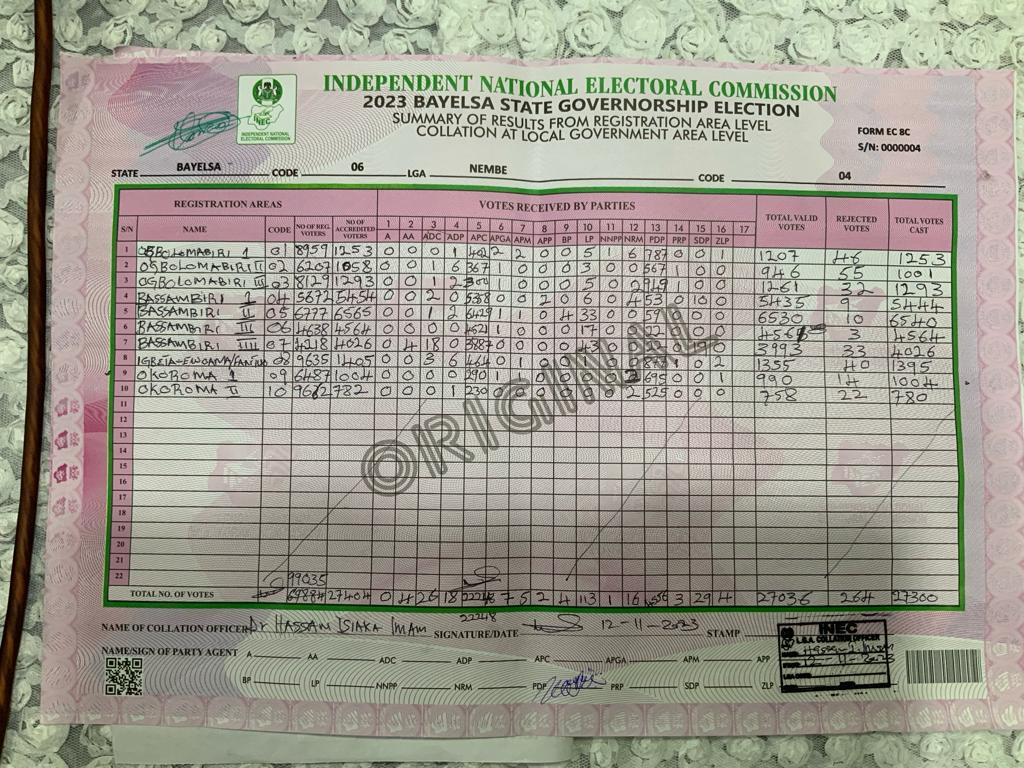 INDEPENDENT NATIONAL ELECTORAL COMMISSION
2023 BAYELSA STATE GOVERNORSHIP ELECTION
SUMMARY OF RESULTS FROM REGISTRATION AREA LEVEL
COLLATION AT LOCAL GOVERNMENT AREA LEVEL
INEC
INDEPENDENT NATIONAL ELECTORAL COMMISSION
FORM EC 8C
S/N: 0000004
STATE BAYELSA CODE 06 LGA NEMBE CODE 04
REGISTRATION AREAS VOTES RECEIVED BY PARTIES TOTAL VALID VOTES REJECTED VOTES TOTAL VOTES CAST
S/N NAME CODE NO OF REG. VOTERS NO OF ACCREDITED VOTERS 1 A 2 AA 3 ADC 4 ADP 5 APC 6 APGA 7 APM 8 APP 9 BP 10 LP 11 NNPP 12 NRM 13 PDP 14 PRP 15 SDP 16 ZLP 17
1 OGBOLOMABIRI 1 01 8959 1253 0 0 0 1 402 2 2 0 0 5 1 6 787 0 0 1 1207 46 1253
2 OGBOLOMABIRI II 02 6207 1058 0 0 1 6 367 1 0 0 0 3 0 0 567 1 0 0 946 55 1001
3 OGBOLOMABIRI III 03 8129 1293 0 0 1 2 0 0 0 0 5 0 1261 32 1293
4 BASSAMBIRI I 04 5672 5454 0 0 2 0 0 0 2 0 6 0 453 0 10 0 5435 9 5444
5 BASSAMBIRI II 05 6777 6565 0 0 1 2 6429 1 0 9 33 0 0 6530 10 6540
6 BASSAMBIRI III 06 4638 4564 0 0 0 0 4521 1 0 0 0 17 0 3 4564
7 BASSAMBIRI IIII 07 4218 4026 0 4 18 0 0 0 0 0 3993 33 4026
8 08 9635 1405 0 0 3 6 464 0 1 0 0 0 2 1355 40 1395
9 OKOROMA 1 09 6487 1004 0 0 0 0 290 1 1 0 0 0 0 695 0 0 1 990 14 1004
10 OKOROMA II 10 9662 782 0 0 0 1 230 0 0 0 0 0 0 2 525 0 0 0 758 22 780
11
12
13
14
15
16
17
18
19
20
21
22 99035
TOTAL NO. OF VOTES 27404 0 4 26 18 7 5 2 4 113 1 16 3 29 4 27036 264 27300
22248
NAME OF COLLATION OFFICER Dr HASSAM ISIAKA IMAM SIGNATURE/DATE 12-11-2023 STAMP
INEC
L.G.A. COLLATION OFFICER
12-11-2023
NAME/SIGN OF PARTY AGENT A AA ADC ADP APC APGA APM APP
BP LP NNPP NRM PDP PRP SDP ZLP
ORIGINAL